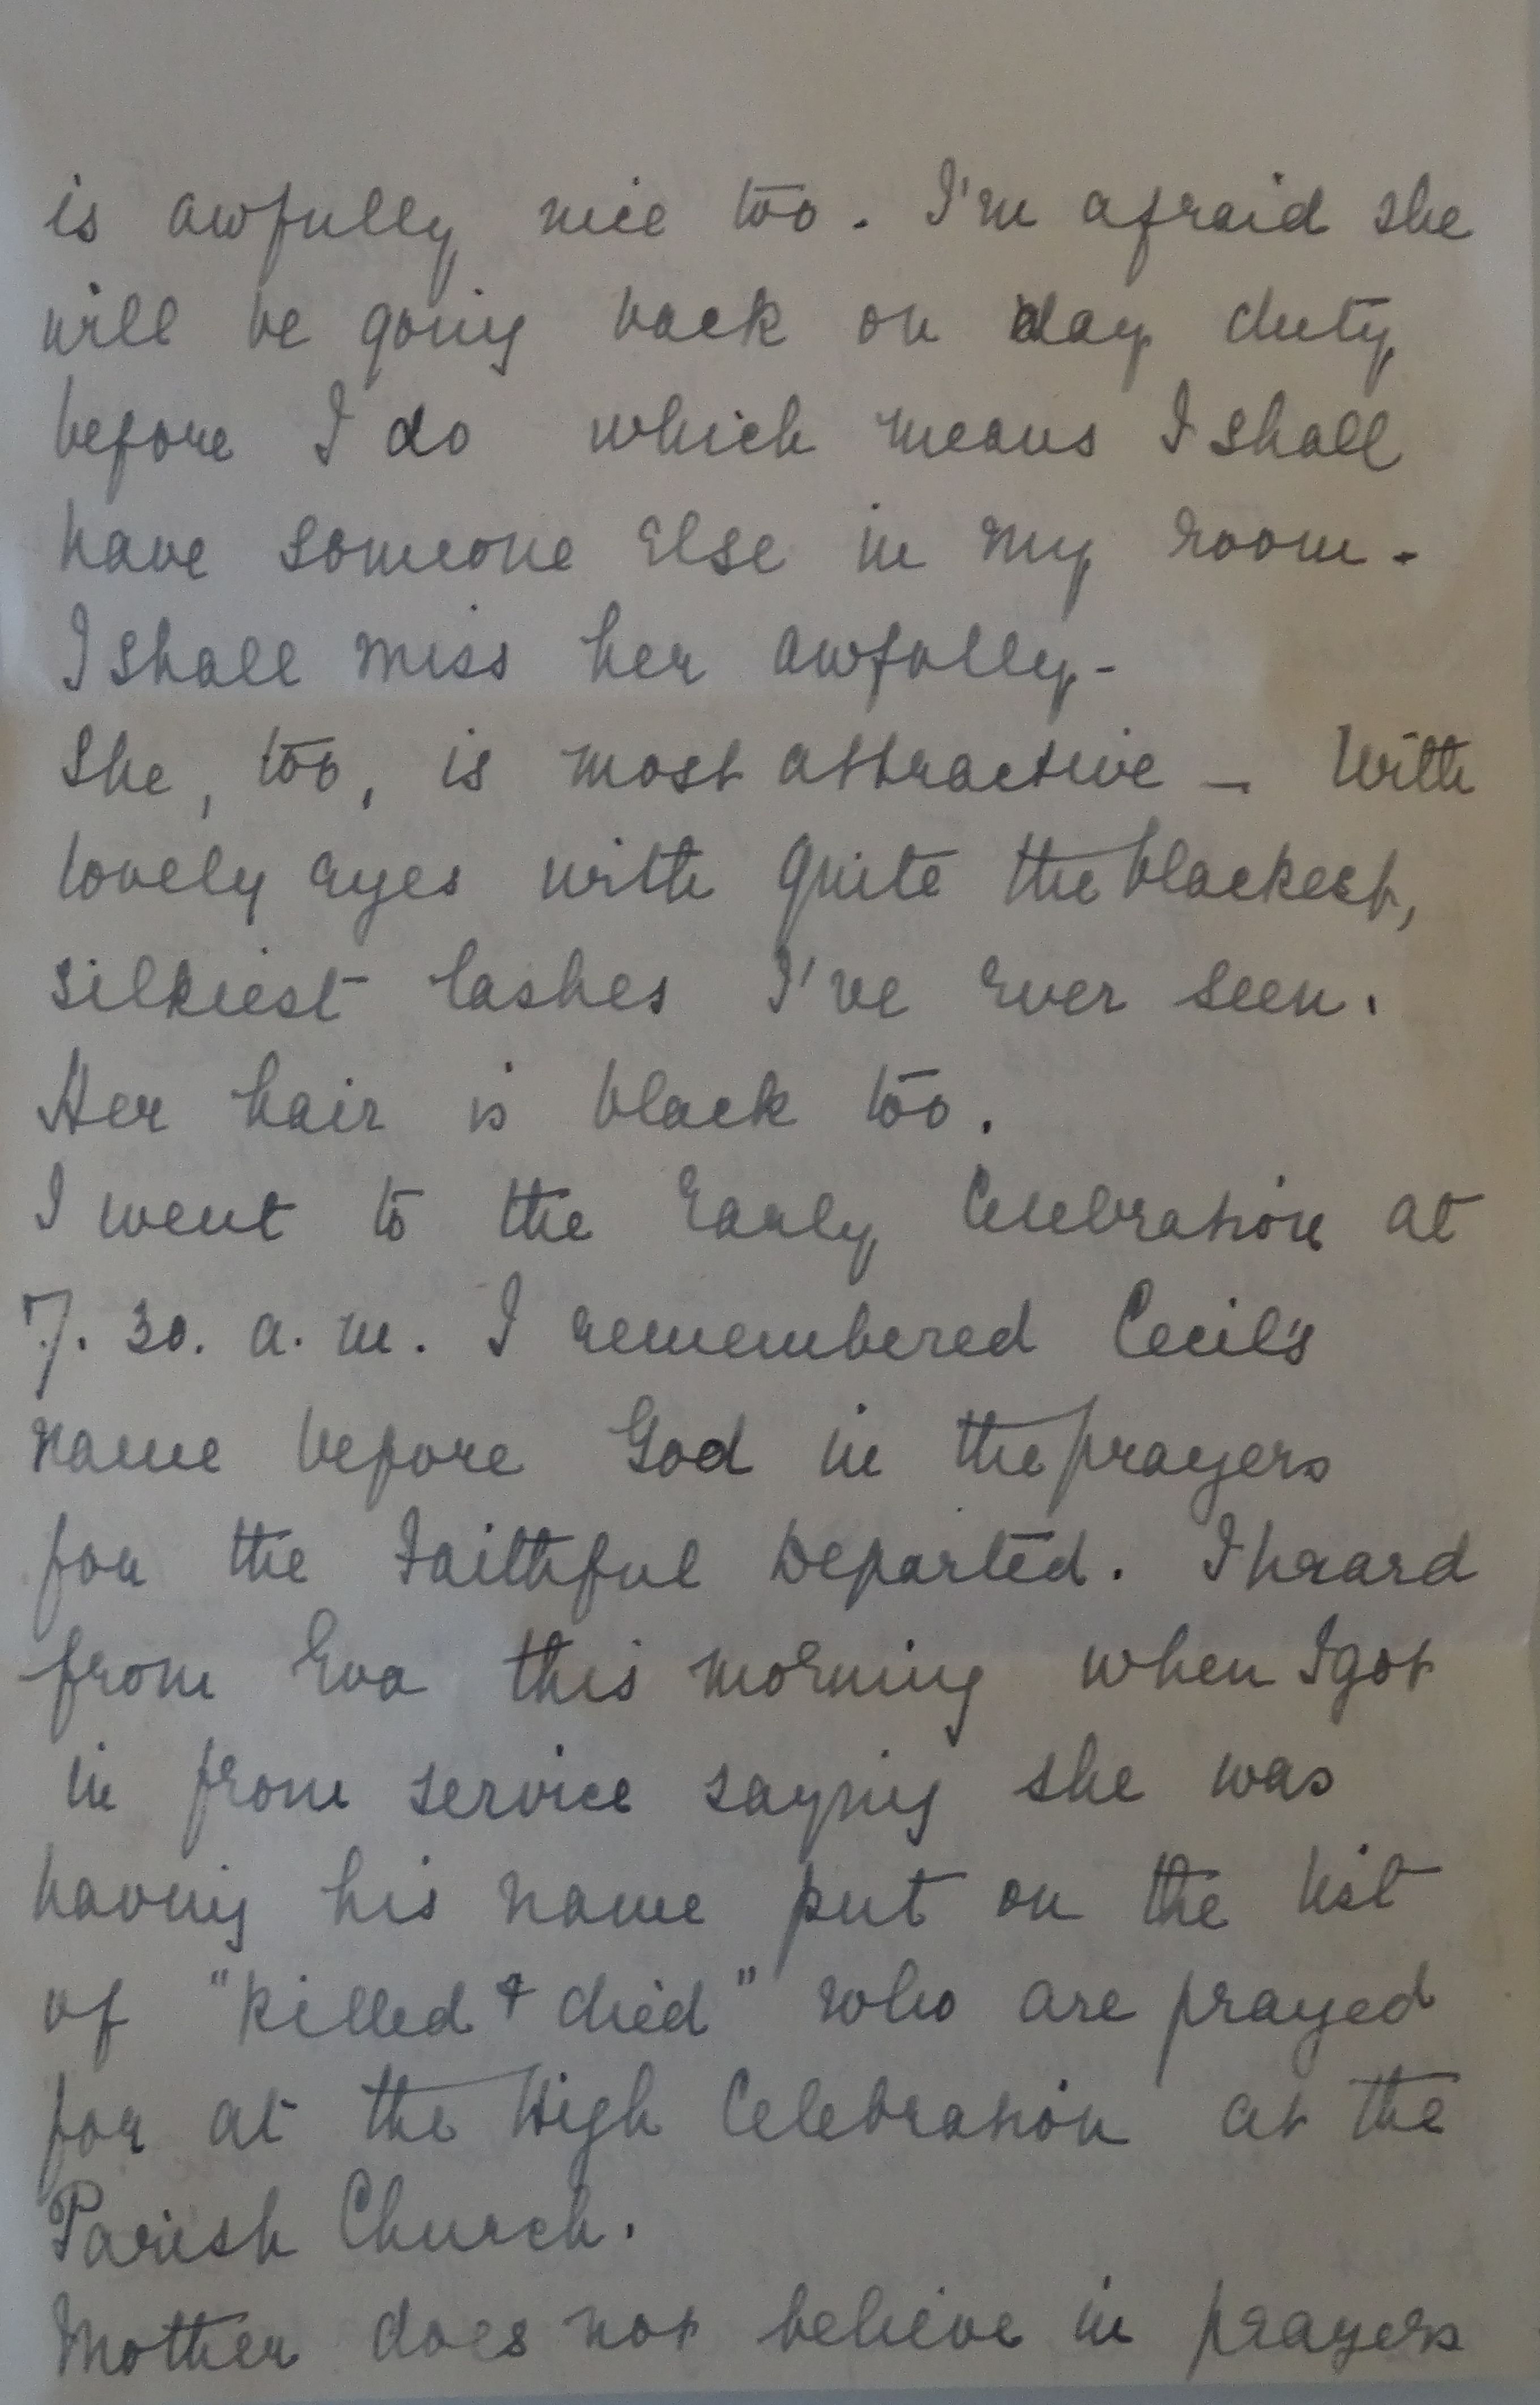 is awfully nice too. I'm afraid she
will be going back on day duty
before I do which means I shall
have someone else in my room -
I shall miss her awfully -
She, too, is most attractive - With
lovely eyes with quite the blackest,
silkiest lashes I've ever seen.
Her hair is black too.
I went to the Early Celebration at
7.30. a.m. I remembered Cecil's
name before God in the prayers
for the Faithful Departed. I heard
from Eva this morning when I got
in from service saying she was
having his name put on the list
of "killed & died" who are prayed
for at the High Celebration at the
Parish Church.
Mother does not believe in prayers